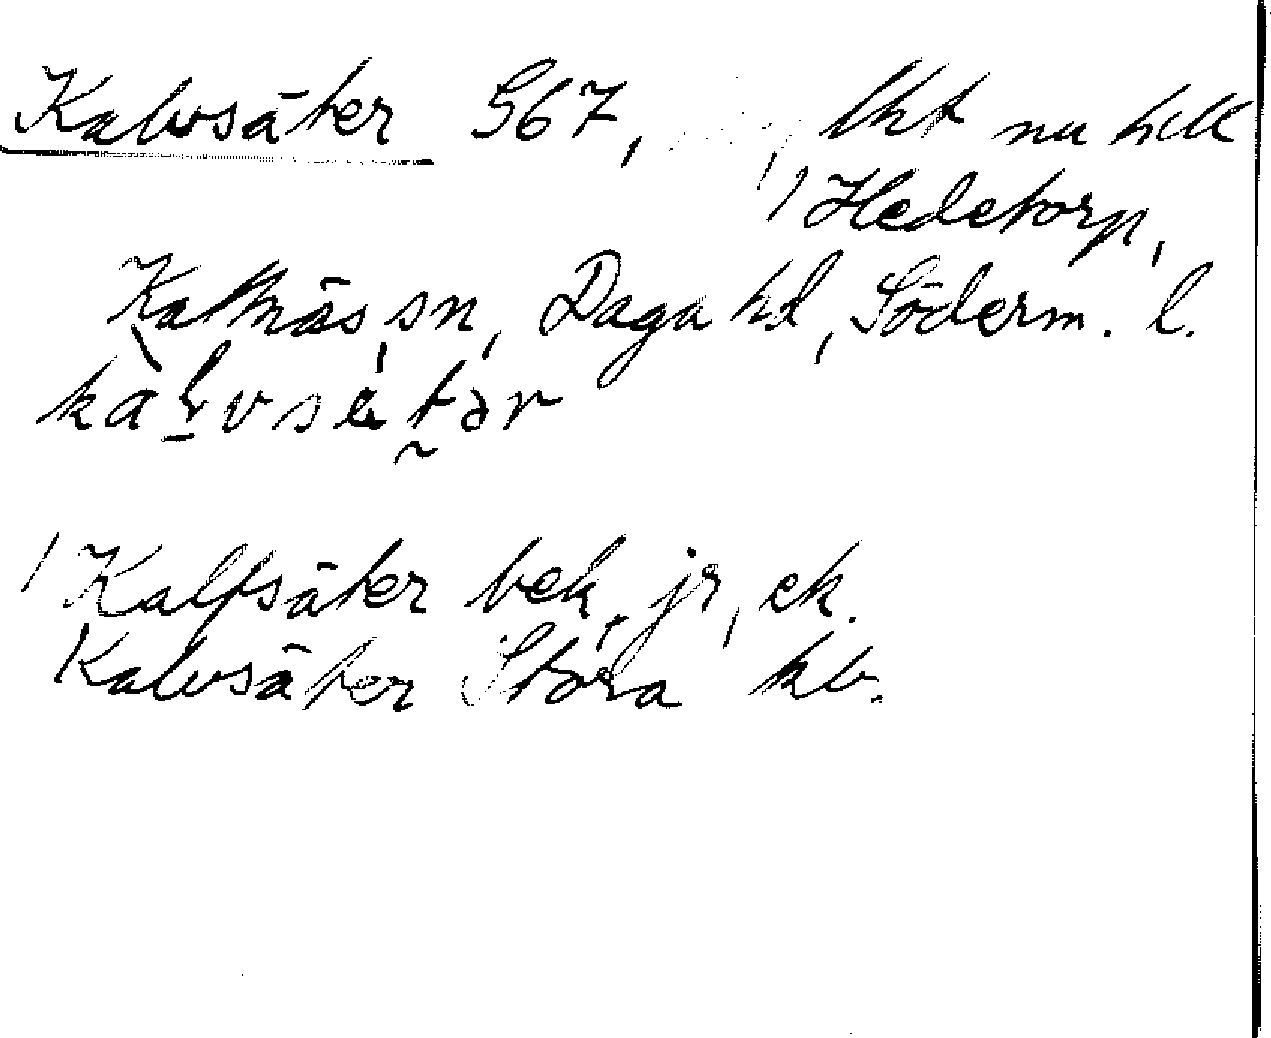 Kalvsäter 567, lht nu till
Hedetorp,
Kattnäs sn, Daga hd, Söderm. l.
kalvsätər
Kalfsäter bek, jr, ek.
Kalvsäter Stora kb.